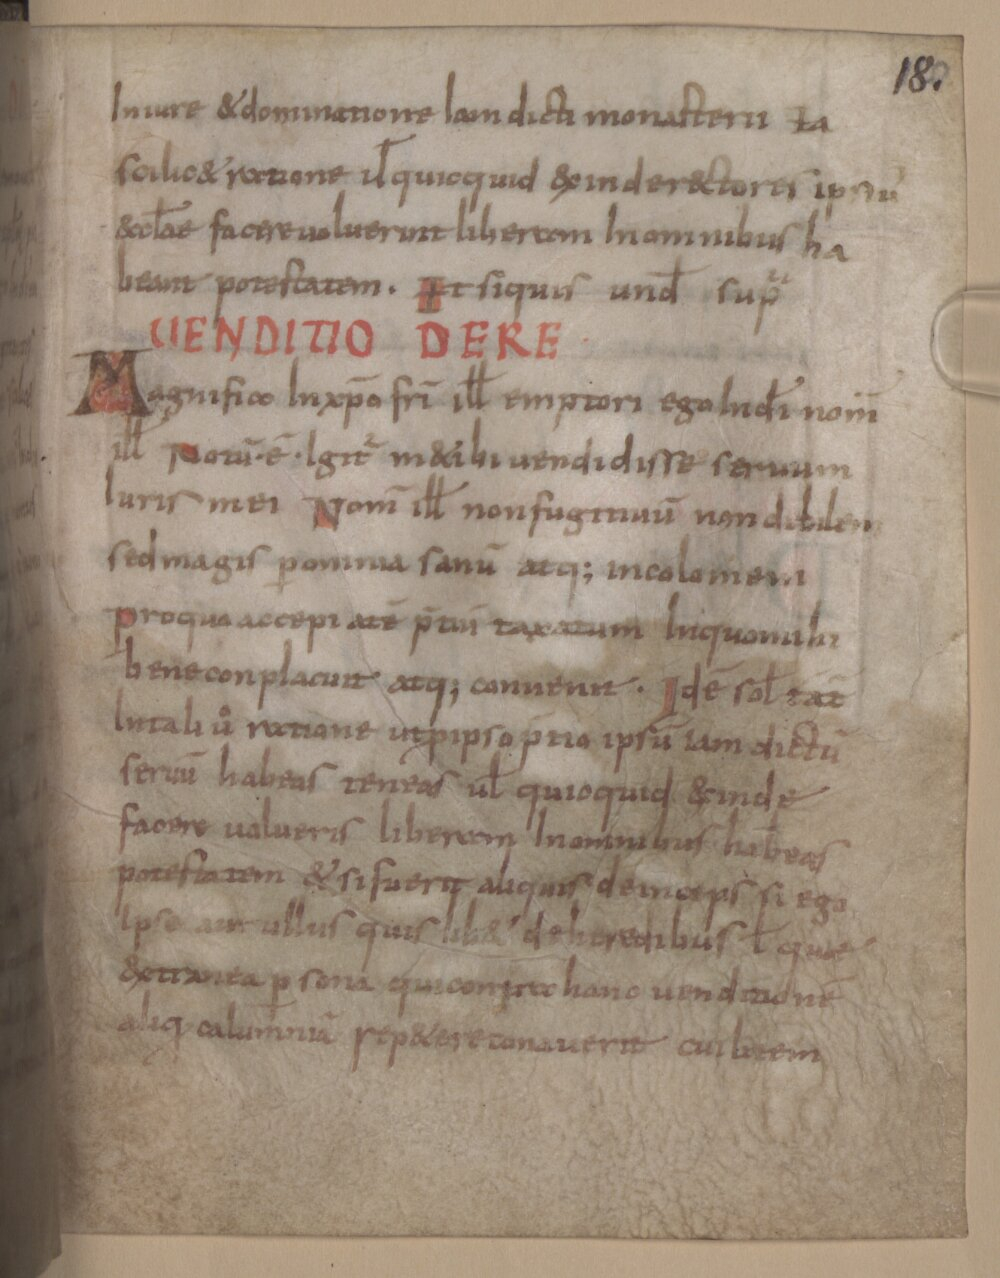 18.
Iniure &dominatione Iam dicti monasterii ta
scilic& ratione ul̄ quicquid &exinde r&ctoris ipsiu
&cl̄ae facere uoluerint libertatem In omnibus ha
beant potestatem. Et siquis und̄ sup̄
UENDITIO DE RE
Magnifico In xp̄o fr̄i ill̄ emptori ego In dī nom̄
ill̄ Notū·ē·Igit̄ m& ibi uendidisse seruum
Iuris mei Nom̄ ill̄ non fugitiuū non debilem
sed magis p̄ omnia sanū atq; incolomem
pro quo accepi a tē p̄tiū taxatum In quo mihi
bene conplacuit atq; conuenit. Id ē sol̄ tāt
In tali ū ratione ut p ipso p̄tio ipsū iam dictū
seruū habeas teneas ul̄ quicquid &exinde
facere uolueris libertatem In omnibus habeas
potestatem & si fuerit aliquis deinceps si ego
Ipse aut ullus quis lib& de heredibus l̄ que
&extranea p̄sona qui contra hanc uenditionē
aliq calumniā rep&ere conauerit cui litem